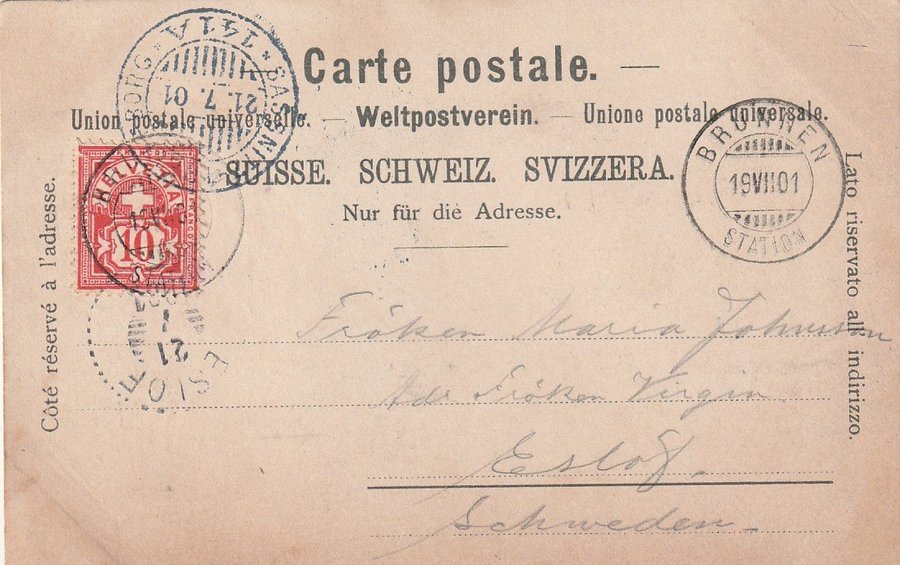 Carte postale. —
Union postale universelle. — Weltpostverein. — Unione postale universale.
SUISSE. SCHWEIZ. SVIZZERA.
Nur für die Adresse.
Côté réservé à l'adresse.
Lato riservato all indirizzo.
141A
21.7.01
BRUNNEN
19VII01
STATION
HELVETIA
10
21
ESLÖF
Fröken Maria Johnsson
Adr Fröken Virgin.
Eslöf.
Schweden.